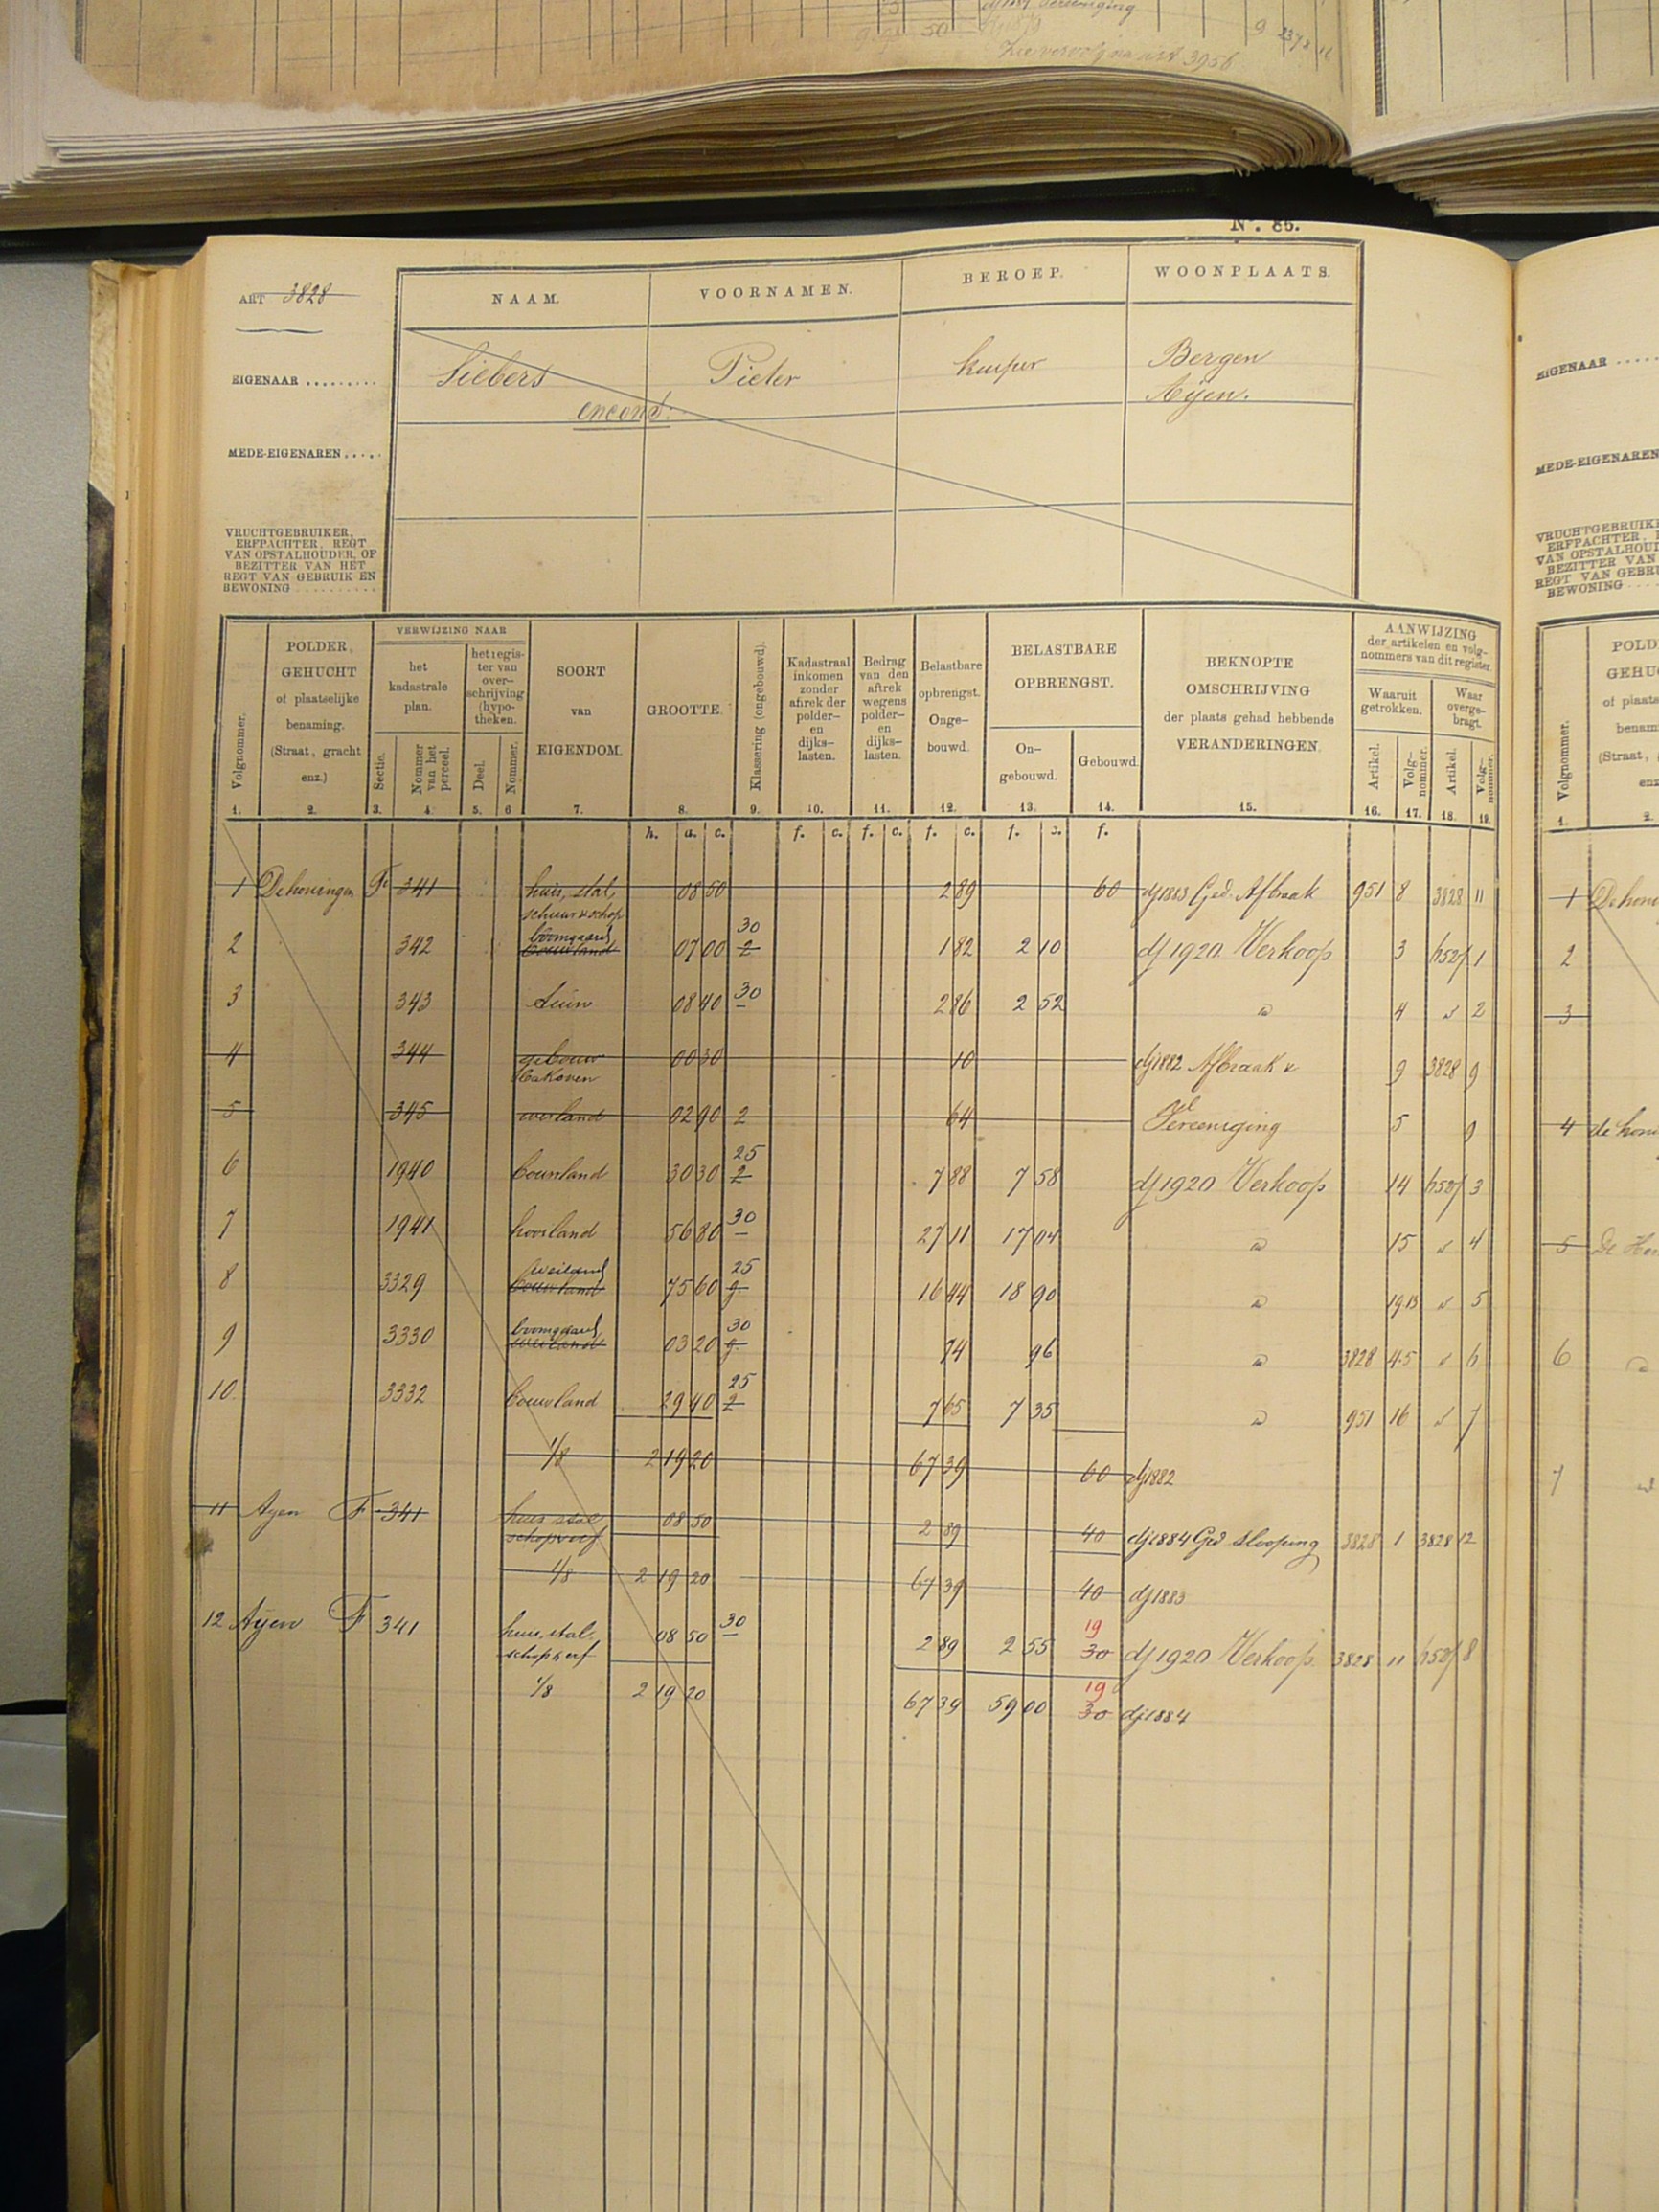 Zie vervolg na art 3956
Nº. 85.
ART 3828
NAAM. VOORNAMEN. BEROEP. WOONPLAATS.
EIGENAAR ......... Siebers Pieter kuiper Bergen
en cons: Aijen.
MEDE-EIGENAREN .....
VRUCHTGEBRUIKER,
ERFPACHTER, REGT
VAN OPSTALHOUDER, OF
BEZITTER VAN HET
REGT VAN GEBRUIK EN
BEWONING ..........
Volgnommer. 1.
POLDER, GEHUCHT of plaatselijke benaming. (Straat, gracht enz.) 2.
VERWIJZING NAAR
het kadastrale plan. Sectie. 3. Nommer van het perceel. 4.
het regis-ter van over-schrijving (hypo-theken. Deel. 5. Nommer. 6
SOORT VAN EIGENDOM. 7.
GROOTTE. 8.
Klassering (ongebouwd). 9.
Kadastraal inkomen zonder aftrek der polder- en dijks-lasten. 10.
Bedrag van den aftrek wegens polder- en dijks-lasten. 11.
Belastbare opbrengst. Onge-bouwd. 12.
BELASTBARE OPBRENGST. On-gebouwd. 13. Gebouwd. 14.
BEKNOPTE OMSCHRIJVING der plaats gehad hebbende VERANDERINGEN. 15.
AANWIJZING der artikelen en volg-nommers van dit register.
Waaruit getrokken. Artikel. 16. Volg-nommer. 17.
Waar overge-bragt. Artikel. 18. Volg-nommer. 19.
h. a. c. f. c. f. c. f. c. f. c. f.
1 De honingen F 341 huis, stal, 08 50 2 89 60 dj1883 Ged. Afbraak 951 8 3828 11
schuur & schop
boomgaard 30
2 342 bouwland 07 00 2 1 82 2 10 dj 1920 Verkoop 3 1
3 343 tuin 08 40 30 2 86 2 52 " 4 " 2
4 344 gebouw 00 30 10 dj1882 Afbraak & 9 3828 9
bakoven
5 345 02 90 2 64 Vereeniging 5 9
25
6 1940 bouwland 30 30 2 7 88 7 58 dj 1920 Verkoop 14 3
7 1941 56 80 30 27 11 17 04 " 15 " 4
weiland 25
8 3329 bouwland 75 60 16 44 18 90 " 19.13 " 5
boomgaard 30
9 3330 03 20 74 96 " 3828 4.5 " 6
25
10. 3332 bouwland 29 40 2 7 65 7 35 " 951 16 " 7
1/8 2 19 20 67 39 60 dj1882
11 Ayen F 341 huis stal 08 50 2 89 40 dj1884 Ged slooping 3828 1 3828 12
schop & erf
1/8 2 19 20 67 39 40 dj1883
19
12 Ayen F 341 huis, stal, 08 50 30 2 89 2 55 30 dj 1920 Verkoop. 3828 11 8
schop & erf
19
1/8 2 19 20 67 39 59 00 30 dj1884
EIGENAAR .....
MEDE-EIGENAREN
VRUCHTGEBRUIK
ERFPACHTER,
VAN OPSTALHOUD
BEZITTER VAN
REGT VAN GEBRU
BEWONING
Volgnommer.
1.
1
2
3
4
5
6
7